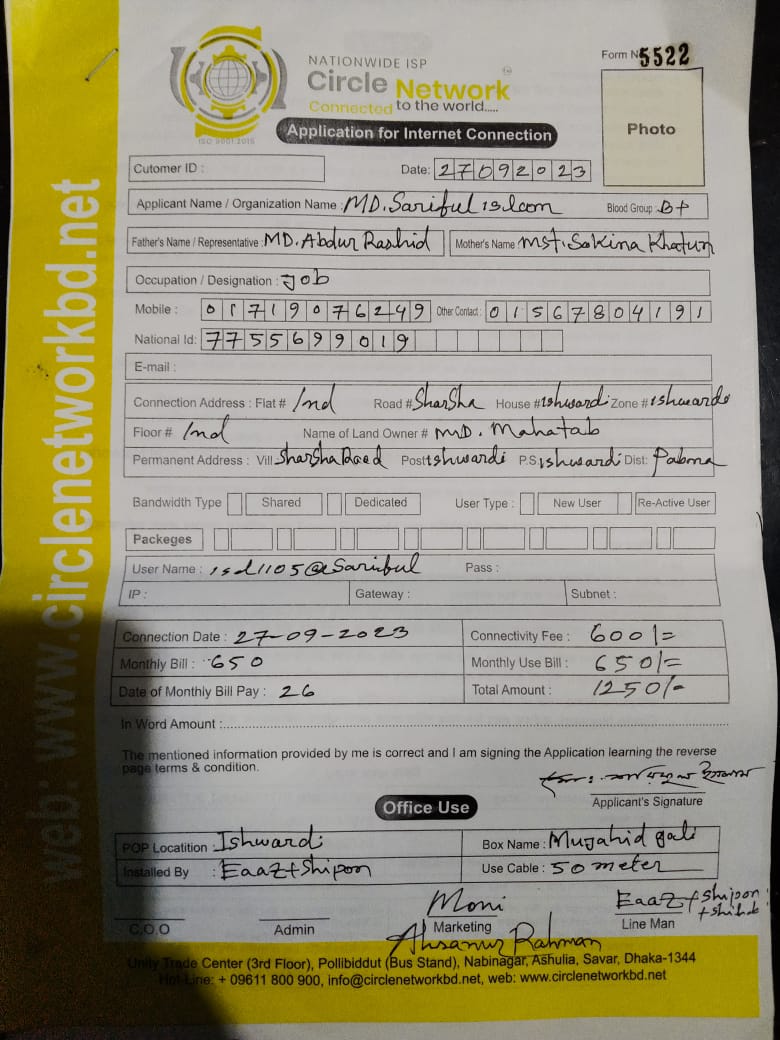 web: www.circlenetworkbd.net
NATIONWIDE ISP
Circle Network
Connected to the world.....
ISO 9001:2015
Form N 5522
Photo
Application for Internet Connection
Cutomer ID :
Date: 27092023
Applicant Name / Organization Name : MD. Sariful islam Blood Group : B+
Father's Name / Representative : MD. Abdur Rashid Mother's Name Mst. Sakina Khatun
Occupation / Designation : Job
Mobile : 01719076249 Other Contact : 01567804191
National Id: 7755699019
E-mail :
Connection Address : Flat # 1nd Road # SharSha House # ishwardi Zone # ishwardi
Floor # 1nd Name of Land Owner # MD. Mahatab
Permanent Address : Vill SharSha Road Post ishwardi P.S ishwardi Dist: Pabna
Bandwidth Type Shared Dedicated User Type : New User Re-Active User
Packeges
User Name : isd1105@Sariful Pass :
IP : Gateway : Subnet :
Connection Date : 27-09-2023 Connectivity Fee : 600/=
Monthly Bill : 650 Monthly Use Bill : 650/=
Date of Monthly Bill Pay : 26 Total Amount : 1250/-
In Word Amount :
The mentioned information provided by me is correct and I am signing the Application learning the reverse
page terms & condition.
Applicant's Signature
Office Use
POP Locatition : Ishwardi Box Name : Mujahid gali
Installed By : Eaaz+Shipon Use Cable : 50 meter
Moni Eaaz+Shipon
+Shihab
C.O.O Admin Marketing Line Man
Ahsanur Rahman
Unity Trade Center (3rd Floor), Pollibiddut (Bus Stand), Nabinagar, Ashulia, Savar, Dhaka-1344
Hot-Line: + 09611 800 900, info@circlenetworkbd.net, web: www.circlenetworkbd.net